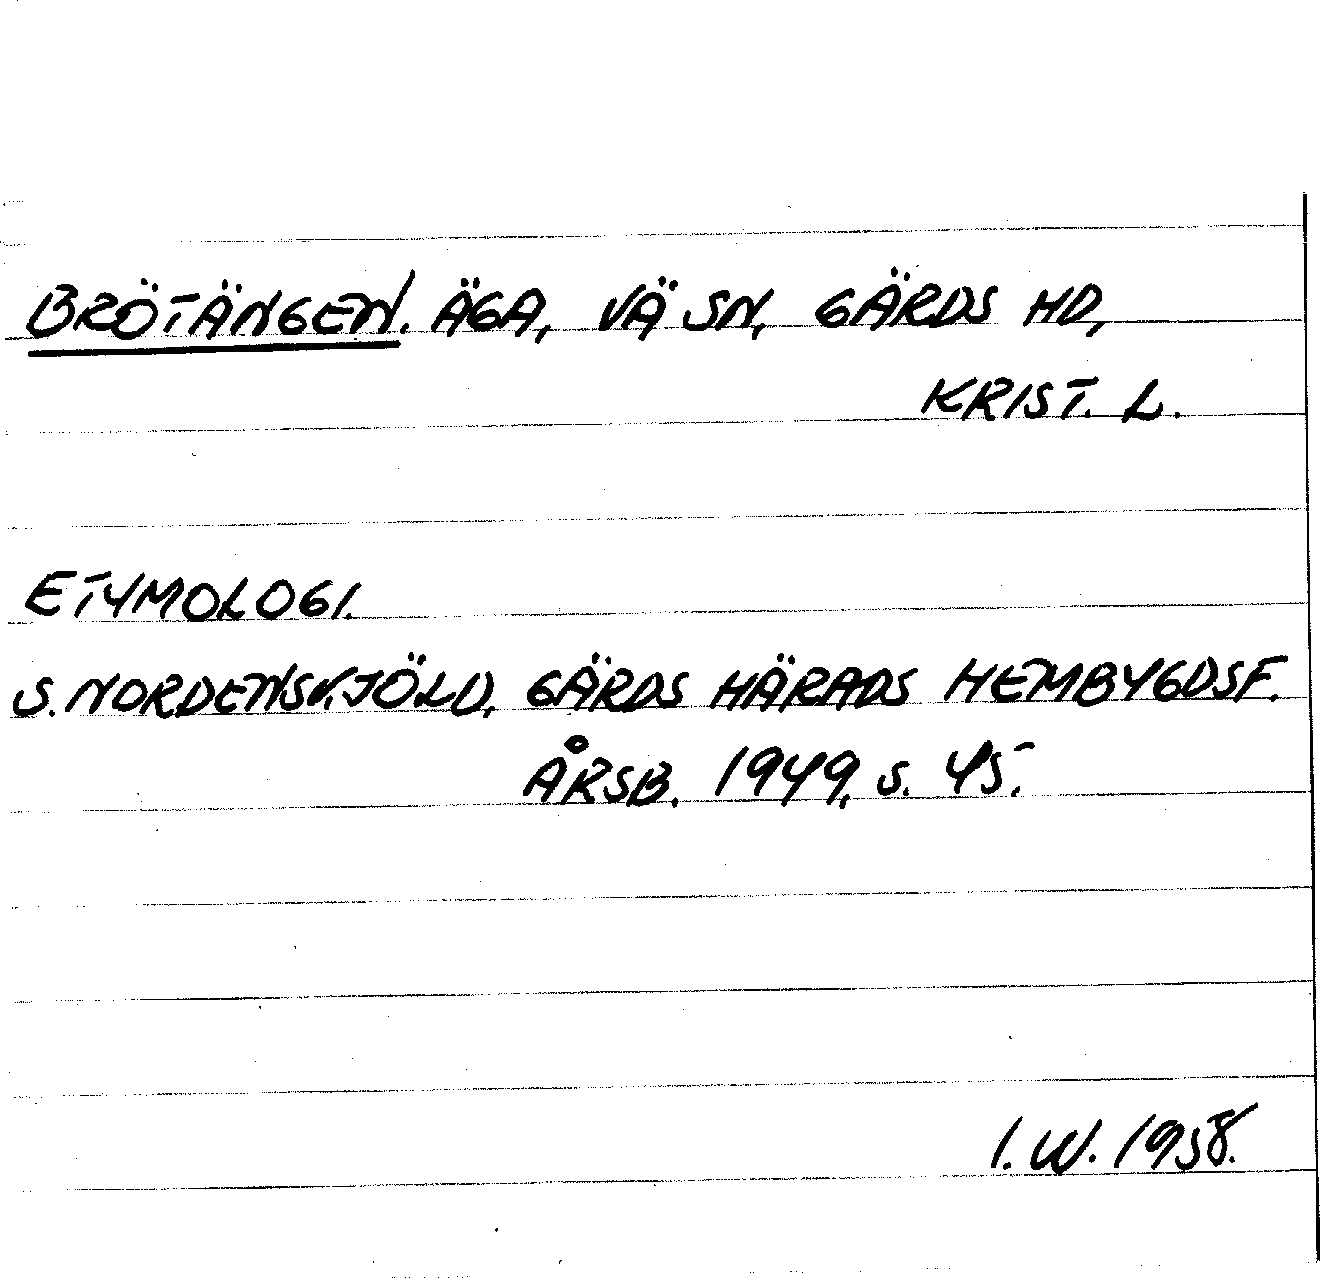 BRÖTÄNGEN. ÄGA, VÄ SN, GÄRDS HD,
KRIST. L.
ETYMOLOGI.
S. NORDENSKJÖLD, GÄRDS HÄRADS HEMBYGDSF.
ÅRSB. 1949, S. 45.
I. W. 1958.